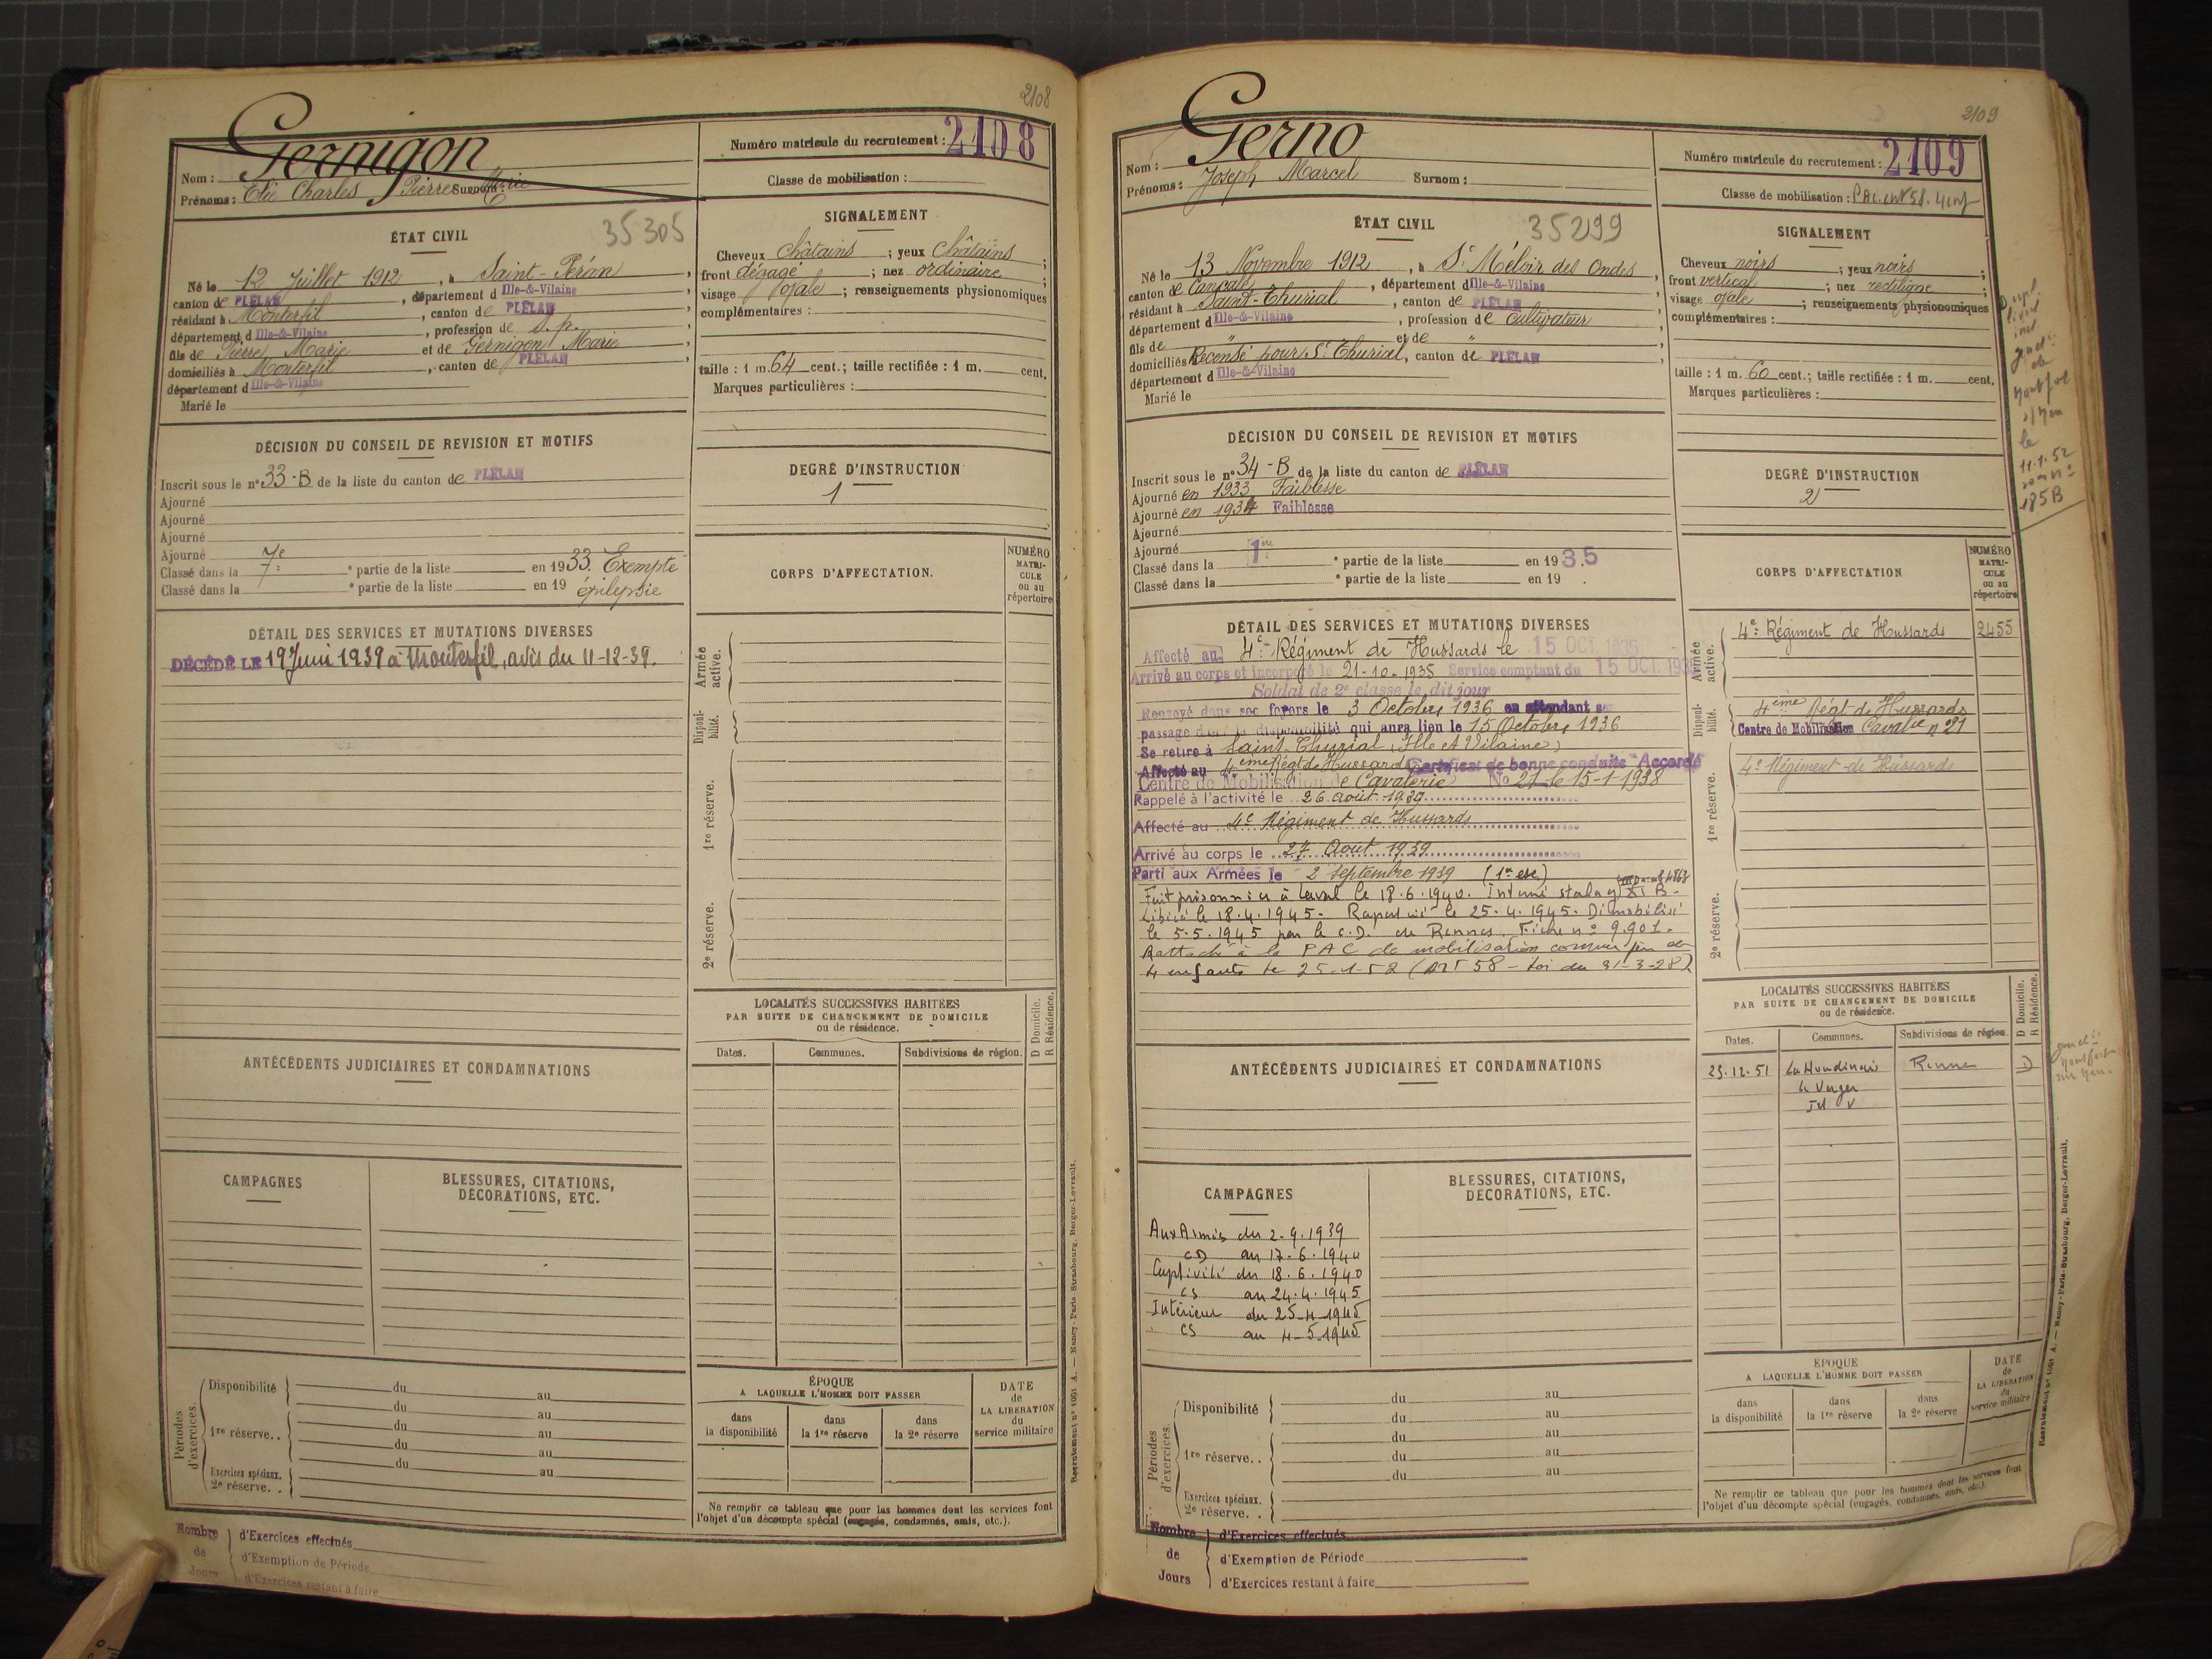 2108
Gernigon
Nom :
Prénoms : Elie Charles Pierre Surnom : Marie
Numéro matricule du recrutement : 2108
Classe de mobilisation :
ÉTAT CIVIL
35305
Né le 12 Juillet 1912, à Saint-Péran,
canton de PLÉLAN, département d Ille-&-Vilaine
résidant à Monterfil, canton de PLÉLAN,
département d Ille-&-Vilaine, profession de S. p.,
fils de Pierre Marie et de Gernigon Marie,
domiciliés à Monterfil, canton de PLÉLAN,
département d Ille-&-Vilaine
Marié le
SIGNALEMENT
Cheveux châtains ; yeux châtains ;
front dégagé ; nez ordinaire ;
visage ovale ; renseignements physionomiques
complémentaires :
taille : 1 m. 64 cent.; taille rectifiée : 1 m. cent.
Marques particulières :
DÉCISION DU CONSEIL DE REVISION ET MOTIFS
Inscrit sous le n° 33-B de la liste du canton de PLÉLAN
Ajourné
Ajourné
Ajourné
Ajourné
Classé dans la 7e ° partie de la liste en 1933. Exempté
Classé dans la ° partie de la liste en 19 épilepsie
DEGRÉ D'INSTRUCTION
1
CORPS D'AFFECTATION.
NUMÉRO MATRI-CULE ou au répertoire
DÉTAIL DES SERVICES ET MUTATIONS DIVERSES
DÉCÉDÉ LE 19 Juin 1939 à Monterfil, avis du 11-12-39.
Armée active.
Disponi-bilité.
1re réserve.
2e réserve.
LOCALITÉS SUCCESSIVES HABITÉES
PAR SUITE DE CHANGEMENT DE DOMICILE
ou de résidence.
D Domicile.
R Résidence.
Dates. Communes. Subdivisions de région.
ANTÉCÉDENTS JUDICIAIRES ET CONDAMNATIONS
CAMPAGNES
BLESSURES, CITATIONS,
DÉCORATIONS, ETC.
Périodes d'exercices.
Disponibilité du au
du au
1re réserve.. du au
du au
du au
Exercices spéciaux.
2e réserve. . au
ÉPOQUE
A LAQUELLE L'HOMME DOIT PASSER
dans la disponibilité
dans la 1re réserve
dans la 2e réserve
DATE de LA LIBÉRATION du service militaire
Ne remplir ce tableau que pour les hommes dont les services font
l'objet d'un décompte spécial (engagés, condamnés, omis, etc.).
Recrutement n° 1091 A. — Nancy-Paris-Strasbourg, Berger-Levrault.
Nombre de Jours
d'Exercices effectués
d'Exemption de Période
d'Exercices restant à faire
2109
Gerno
Nom :
Prénoms : Joseph Marcel Surnom :
Numéro matricule du recrutement : 2109
Classe de mobilisation : PAC. art 58. 4 enf
ÉTAT CIVIL
35299
Né le 13 Novembre 1912, à St Méloir des Ondes,
canton de Cancale, département d Ille-&-Vilaine
résidant à Saint-Thurial, canton de PLÉLAN
département d Ille-&-Vilaine, profession de cultivateur,
fils de " et de "
domiciliés Recensé pour St Thurial, canton de PLÉLAN
département d Ille-&-Vilaine
Marié le
SIGNALEMENT
Cheveux noirs ; yeux noirs ;
front vertical ; nez rectiligne ;
visage ovale ; renseignements physionomiques
complémentaires :
taille : 1 m. 60 cent.; taille rectifiée : 1 m. cent.
Marques particulières :
le
11.1.52
sous n°
185B
DÉCISION DU CONSEIL DE REVISION ET MOTIFS
Inscrit sous le n° 34-B de la liste du canton de PLÉLAN
Ajourné en 1933 Faiblesse
Ajourné en 1934 Faiblesse
Ajourné
Ajourné
Classé dans la 1re ° partie de la liste en 1935
Classé dans la ° partie de la liste en 19 .
DEGRÉ D'INSTRUCTION
2
CORPS D'AFFECTATION
NUMÉRO MATRI-CULE ou au répertoire
DÉTAIL DES SERVICES ET MUTATIONS DIVERSES
Affecté au 4e Régiment de Hussards le 15 OCT. 1935
Arrivé au corps et incorporé le 21-10-1935 Service comptant du 15 OCT. 1935
Soldat de 2e classe le dit jour
Renvoyé dans ses foyers le 3 Octobre 1936 en attendant son
passage dans la disponibilité qui aura lieu le 15 Octobre 1936
Se retire à Saint-Thurial (Ille et Vilaine)
Affecté au 4ème Régt de Hussards Certificat de bonne conduite "Accordé"
Centre de Mobilisation de Cavalerie No 21 le 15-1-1938
Rappelé à l'activité le 26 août 1939
Affecté au 4e Régiment de Hussards
Arrivé au corps le 27 Août 1939
Parti aux Armées le 2 Septembre 1939 (1er esc)
Fait prisonnier à Laval le 18.6.1940. Interné stalag XI B.
Libéré le 18.4.1945. Rapatrié le 25.4.1945. Démobilisé
le 5.5.1945 par le C.D. de Rennes. Fiche n° 9.901.
Rattaché à la PAC de mobilisation comme père de
4 enfants le 25-1-52 (ART 58 - Loi du 31-3-28)
Armée active.
4e Régiment de Hussards 2455
Disponi-bilité.
4ème Régt de Hussards
Centre de Mobilisation Cavalie n°21
1re réserve.
4e Régiment de Hussards
2e réserve.
LOCALITÉS SUCCESSIVES HABITÉES
PAR SUITE DE CHANGEMENT DE DOMICILE
ou de résidence.
D Domicile.
R Résidence.
Dates. Communes. Subdivisions de région.
23-12-51 La Houdinais Rennes D
le Verger
I et V
ANTÉCÉDENTS JUDICIAIRES ET CONDAMNATIONS
CAMPAGNES
Aux Armées du 2.9.1939
CD au 17.6.1940
Captivité du 18.6.1940
CS au 24.4.1945
Intérieur du 25-4-1945
CS au 4-5-1945
BLESSURES, CITATIONS,
DÉCORATIONS, ETC.
Périodes d'exercices.
Disponibilité du au
du au
1re réserve.. du au
du au
du au
Exercices spéciaux.
2e réserve. .
ÉPOQUE
A LAQUELLE L'HOMME DOIT PASSER
dans la disponibilité
dans la 1re réserve
dans la 2e réserve
DATE de LA LIBÉRATION du service militaire
Ne remplir ce tableau que pour les hommes dont les services font
l'objet d'un décompte spécial (engagés, condamnés, omis, etc.).
Recrutement n° 1091 A. — Nancy-Paris-Strasbourg, Berger-Levrault.
Nombre de Jours
d'Exercices effectués
d'Exemption de Période
d'Exercices restant à faire